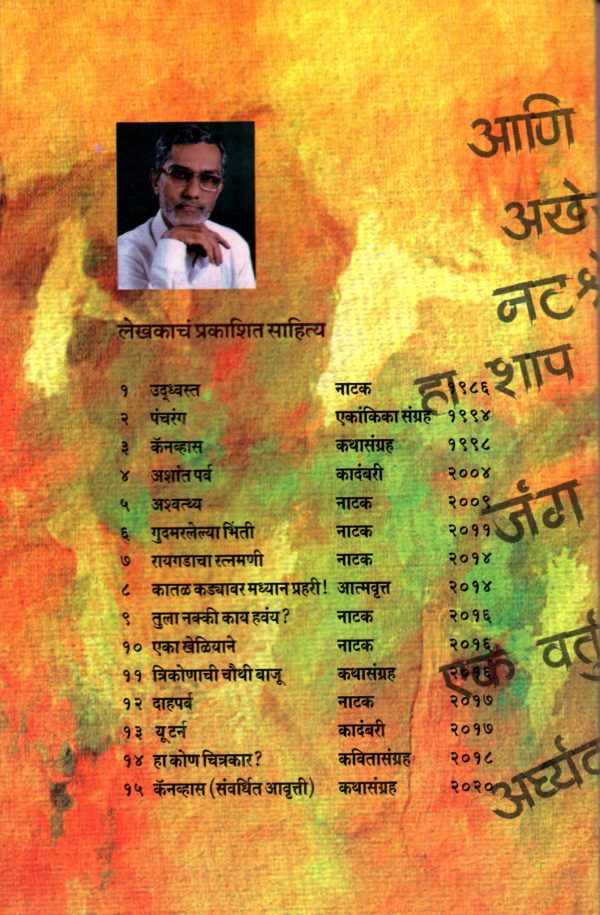 आणि
नटश्रे
हा शाप
जंग
एक वर्तु
लेखकाचं प्रकाशित साहित्य
१ उद्ध्वस्त नाटक १९८६
२ पंचरंग एकांकिका संग्रह १९९४
३ कॅनव्हास कथासंग्रह १९९८
४ अशांत पर्व कादंबरी २००४
५ अश्वत्थ्य नाटक २००९
६ गुदमरलेल्या भिंती नाटक २०११
७ रायगडाचा रत्नमणी नाटक २०१४
८ कातळ कड्यावर मध्यान प्रहरी! आत्मवृत्त २०१४
९ तुला नक्की काय हवंय? नाटक २०१६
१० एका खेळियाने नाटक २०१६
११ त्रिकोणाची चौथी बाजू कथासंग्रह २०१६
१२ दाहपर्व नाटक २०१७
१३ यू टर्न कादंबरी २०१७
१४ हा कोण चित्रकार? कवितासंग्रह २०१८
१५ कॅनव्हास (संवर्धित आवृत्ती) कथासंग्रह २०२०